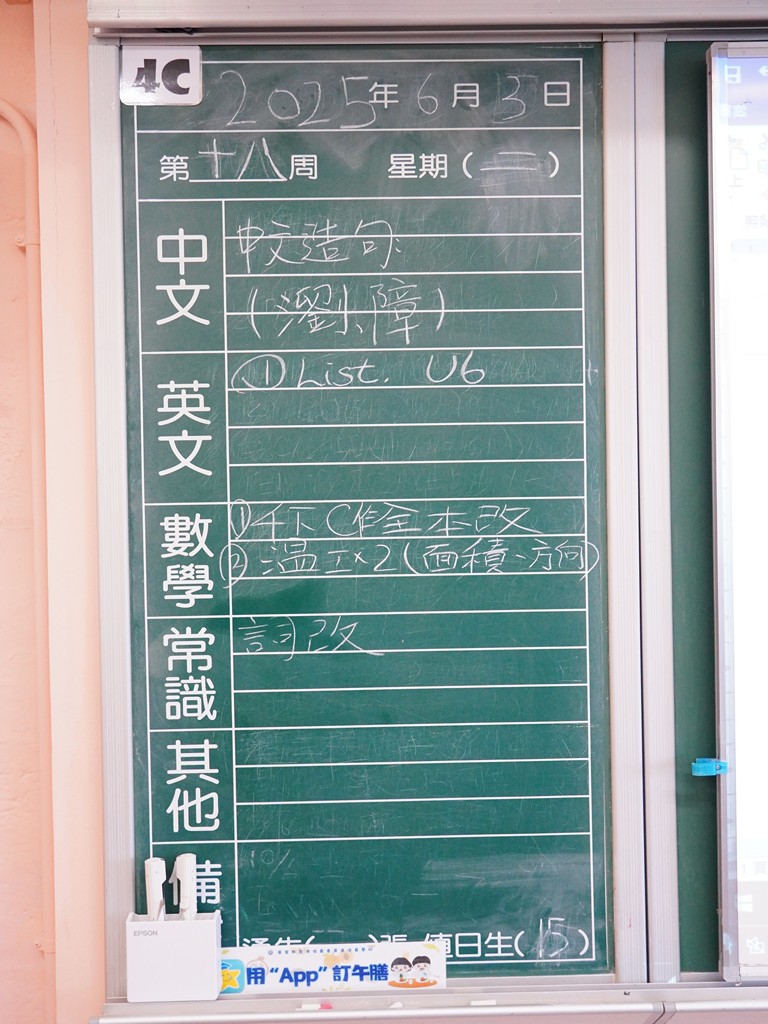 4C
2025年6月3日
第十八周 星期(二)
中文
中文造句:
(瀏小障)
英文
① List. U6
數學
① 4下C作全本改
② 溫工×2(面積、方向)
常識
詞改
其他
備
通告( )張 值日生(15)
EPSON
用“App”訂午膳